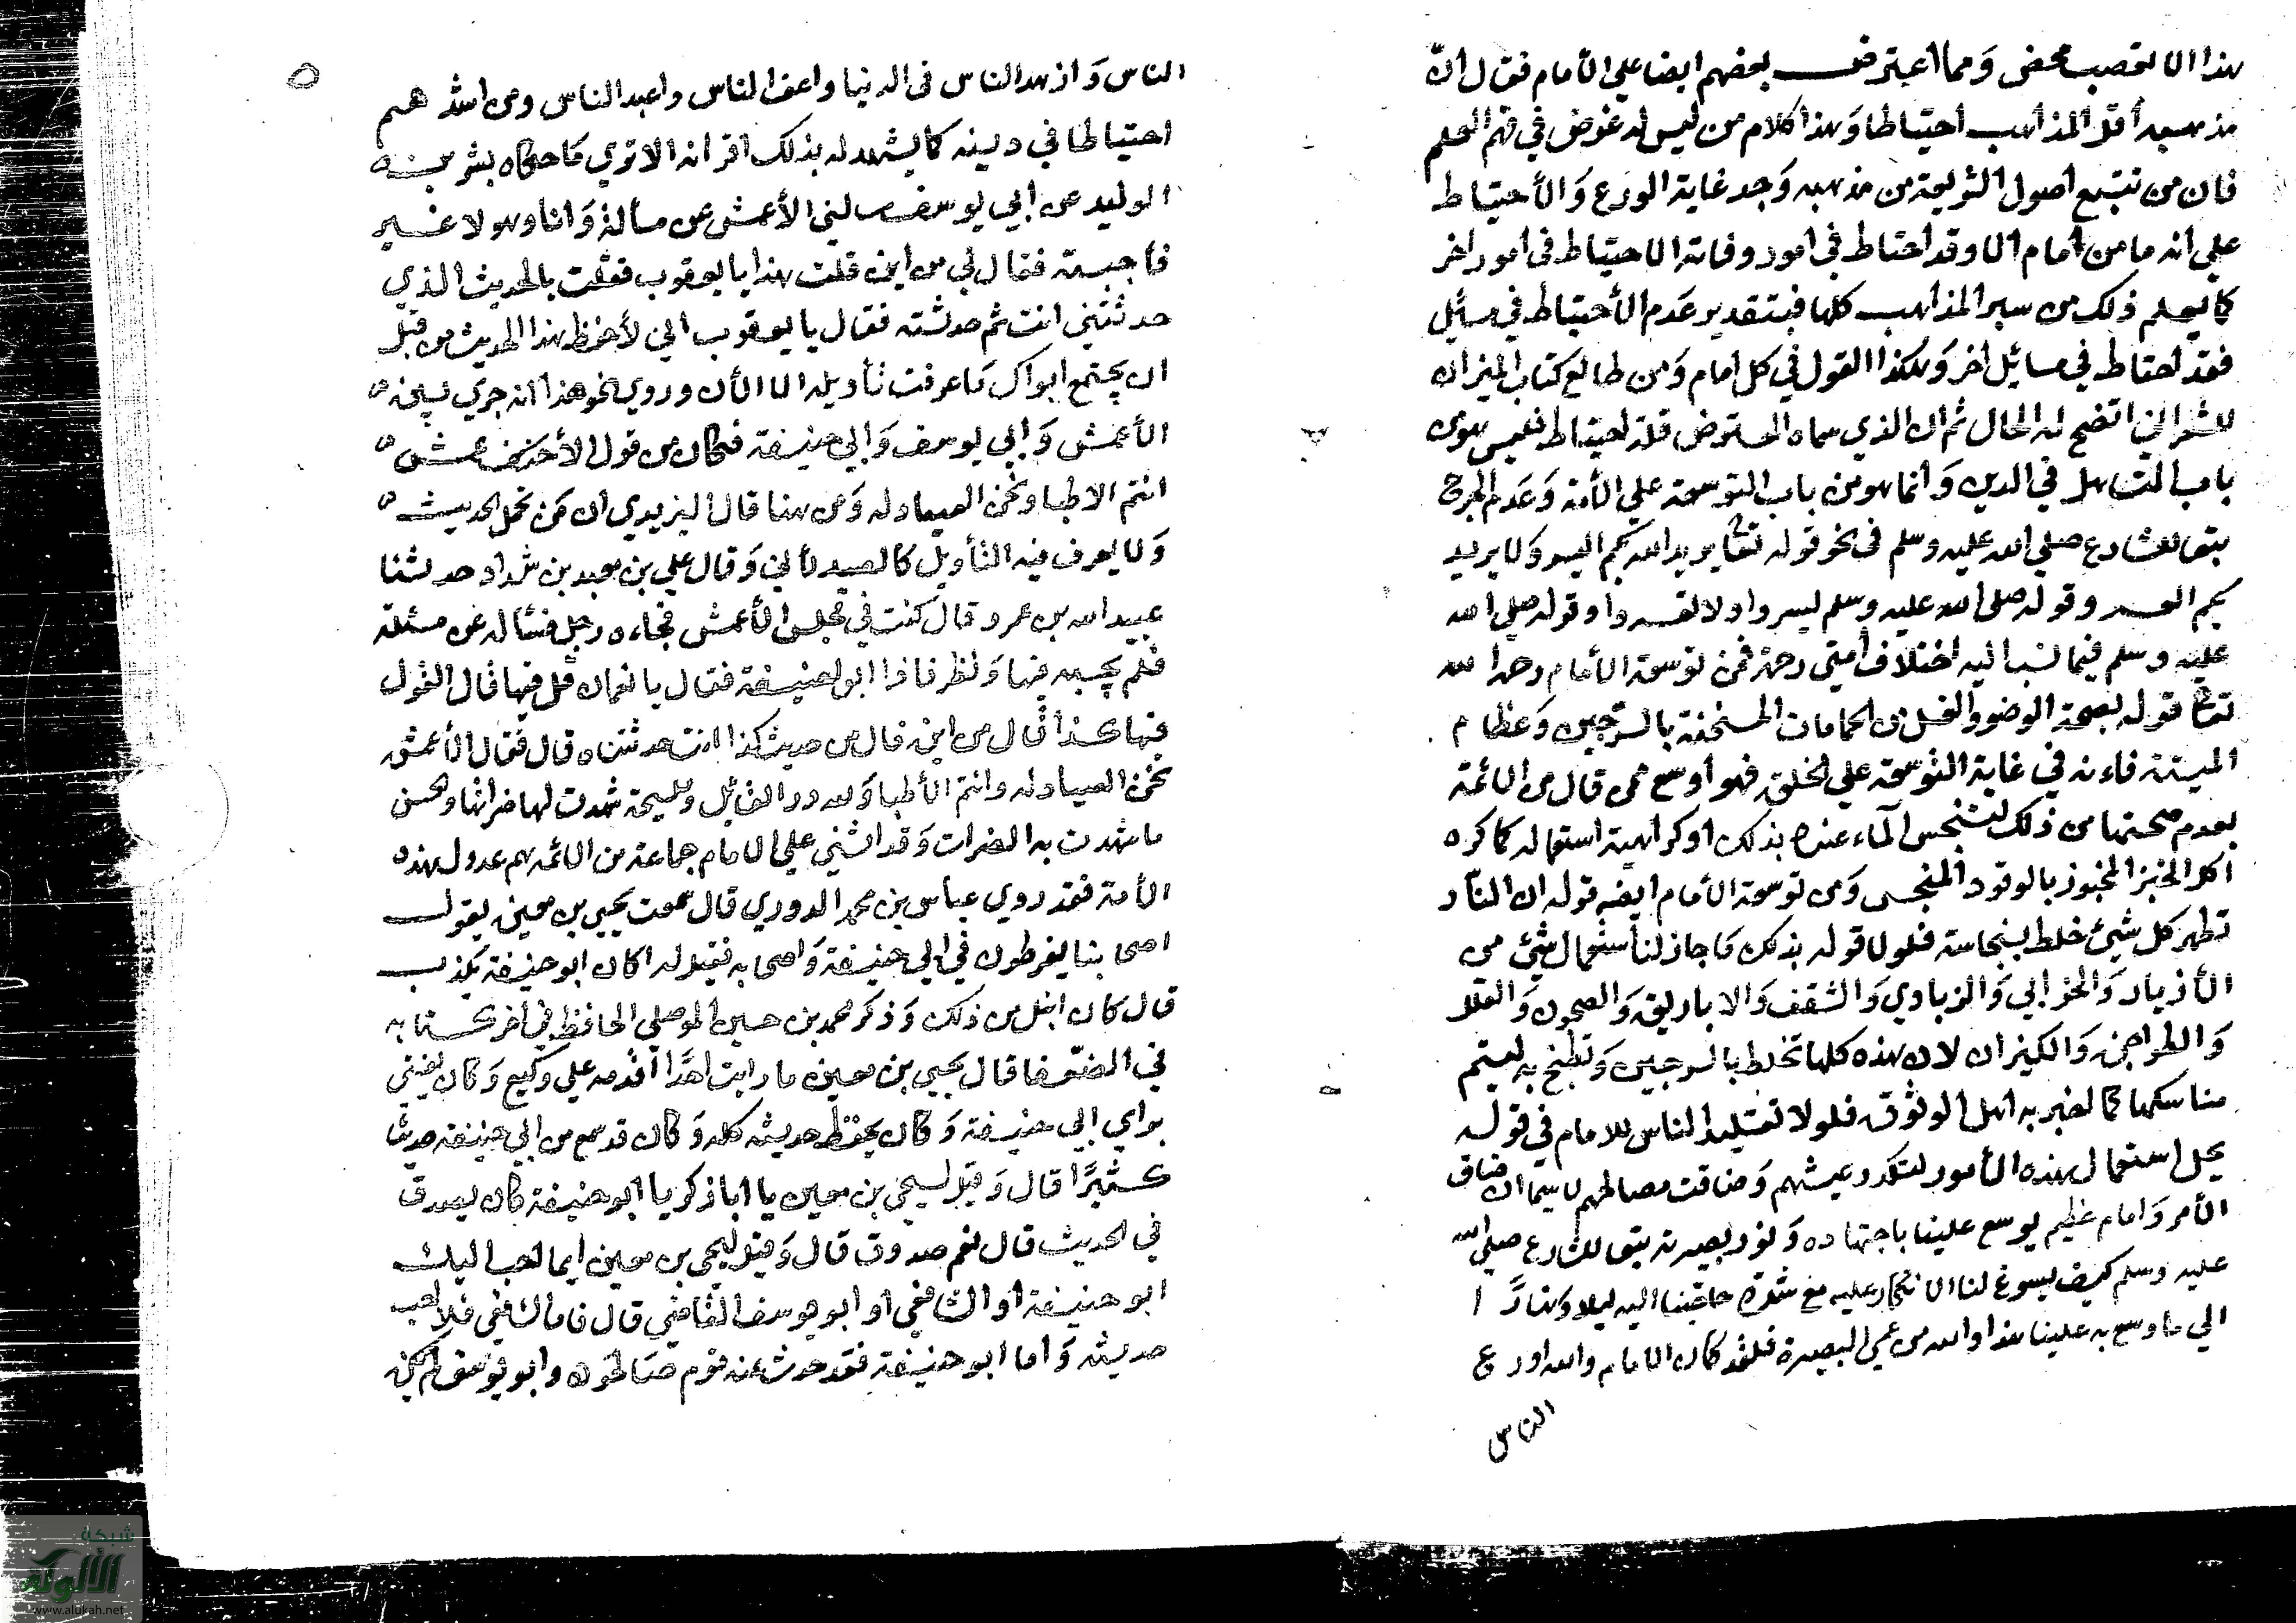 هذا الا تعصب محض وَمما اعترض بعضهم ايضا علي الأمام فقال انّ
مذهبه أقل المذاهب احتياطا وَهذا كلام من ليس له غوض في فهم العلم
فان من تتبع اصول الشريعة من مذهبه وَجد غاية الورع وَالأحتياط
علي انه ما من أمام الا وقد احتاط في امور وفاته الاحتياط في امور اخر
كما يعلم ذلك من سبر المذاهب كلها فبتقدير عَدم الأحتياط في مسئل
فقد احتاط في مسائل اخر وَهكذا القول في كل امام وَمن طالع كتاب الميزان
للشعراني اتضح له الحال ثم ان الذي سماه المعترض قلة احتياط فليس هوى
باب التساهل في الدين وَانما هو من باب التوسعة علي الأمة وَعَدم الحرج
بتعا للشارع صلي الله عليه وسلم في نحو قوله تعا يريد الله بكم اليسر وَلا يريد
بكم العسر وقوله صلي الله عليه وسلم يسروا ولا تعسروا وقوله صلي الله
عليه وسلم فيما نسب اليه اختلاف أمتي رحمة فمن توسعة الأمام رحمه الله
تعا قوله بصحة الوضو والغسل من الحمامات المسخنة بالسرجين وَعظام
الميتة فاءنه في غاية التوسعة علي الخلق فهو اوسع ممن قال من الائمة
بعدم صحتها من ذلك لتنجس الماء عنده بذلك او كراهية استعماله كما كره
اكل الخبز المخبوز بالوقود المنجس وَمن توسعة الأمام ايضه قوله ان النّار
تطهر كل شيئ خلط بنجاسة فلولا قوله بذلك مَا جاز لنا استعمال شيئ من
الأزيار وَالخوابي وَالزبادي وَالشقف وَالاباريق وَالصحون وَالقلل
وَالطواجن وَالكيزان لان هذه كلها تخلط بالسرجين وَتطبخ به ليتم
مناسكها كما اخبر به اهل الوثوق فلولا تقليد الناس للامام في قوله
بحل استعمال هذه الأمور لتكدر عيشهم وَضاقت مصالحهم لا سيما ان ضاق
الأمر وَامام عظيم يوسع علينا باجتهاده وَنور بصيرته بتعا للشارع صلي الله
عليه وسلم كيف يسوغ لنا الانكار عليه مع شدة حاجتنا اليه ليلا ونهارًا
الي ما وسع به علينا هذا والله من عمي البصيرة فلقد كان الامام والله اورع
الناس
الناس وَازهد الناس في الدنيا واعف الناس واعبد الناس ومن اشدهم
احتياطا في دينه كما يشهد له بذلك اقرانه الا تري مَا حكاه بشر بن
الوليد عن ابي يوسف سالني الأعمش عن مسألة وَانا وهو لا غير
فأجبته فقال لي من اين قلت هذا يا يعقوب فقلت بالحديث الذي
حدثتني انت ثم حدثته فقال يا يعقوب اني لأحفظ هذا الحديث من قبل
ان يجتمع ابواك مَا عرفت تأويله الا الأن وروي نحو هذا انه جري بين
الأعمش وَابي يوسف وَابي حنيفة فكان من قول الأعمش
انتم الاطبا ونحن الصيادله وَمن هنا قال اليزيدي ان مَن تحمل الحديث
وَلا يعرف فيه التأويل كالصيدلاني وَقال علي بن معبد بن شداد حدثنا
عبيد الله بن عمرو قال كنت في مجلس الأعمش فجاءه رجل فسأله عن مسئلة
فلم يجبه فيها وَنظر فاذا ابو حنيفة فقال يا نعمان قل فيها قال القول
فيها كذا قال من اين قال من حديث كذا انت حدثتناه قال فقال الأعمش
نحن الصيادله وانتم الأطبا وَلله در القائل ومليحة شهدت لها ضراتها والحسن
ما شهدت به الضرات وَقد اثني علي الامام جماعة من الائمه هم عدول هذه
الأمة فقد روي عباس بن محمد الدوري قال سمعت يحيي بن معين يقول
اصحابنا يفرطون في ابي حنيفة وَاصحابه فقيل له اكان ابو حنيفة يكذب
قال كان انبل من ذلك وَذكر محمد بن حسين الموصلي الحافظ في اخر كتابه
في الضعفا قال يحيي بن معين ما رايت احدًا اقدمه علي وكيع وَكان يفتي
براي ابي حنيفة وَكان يحفظ حديثه كله وَكان قد سمع من ابي حنيفة حديثا
كثيرًا قال وَقيل ليحي بن معين يا ابا زكريا ابو حنيفة كان يصدق
في الحديث قال نعم صدوق قال وَقيل ليحي بن معين ايما احب اليك
ابو حنيفة او الشافعي او ابو يوسف القاضي قال فاما الشافعي فلا احب
حديثه وَاما ابو حنيفة فقد حدث عنه قوم صَالحون وابو يوسف لم يكن
شبكة
الألوكة
www.alukah.net